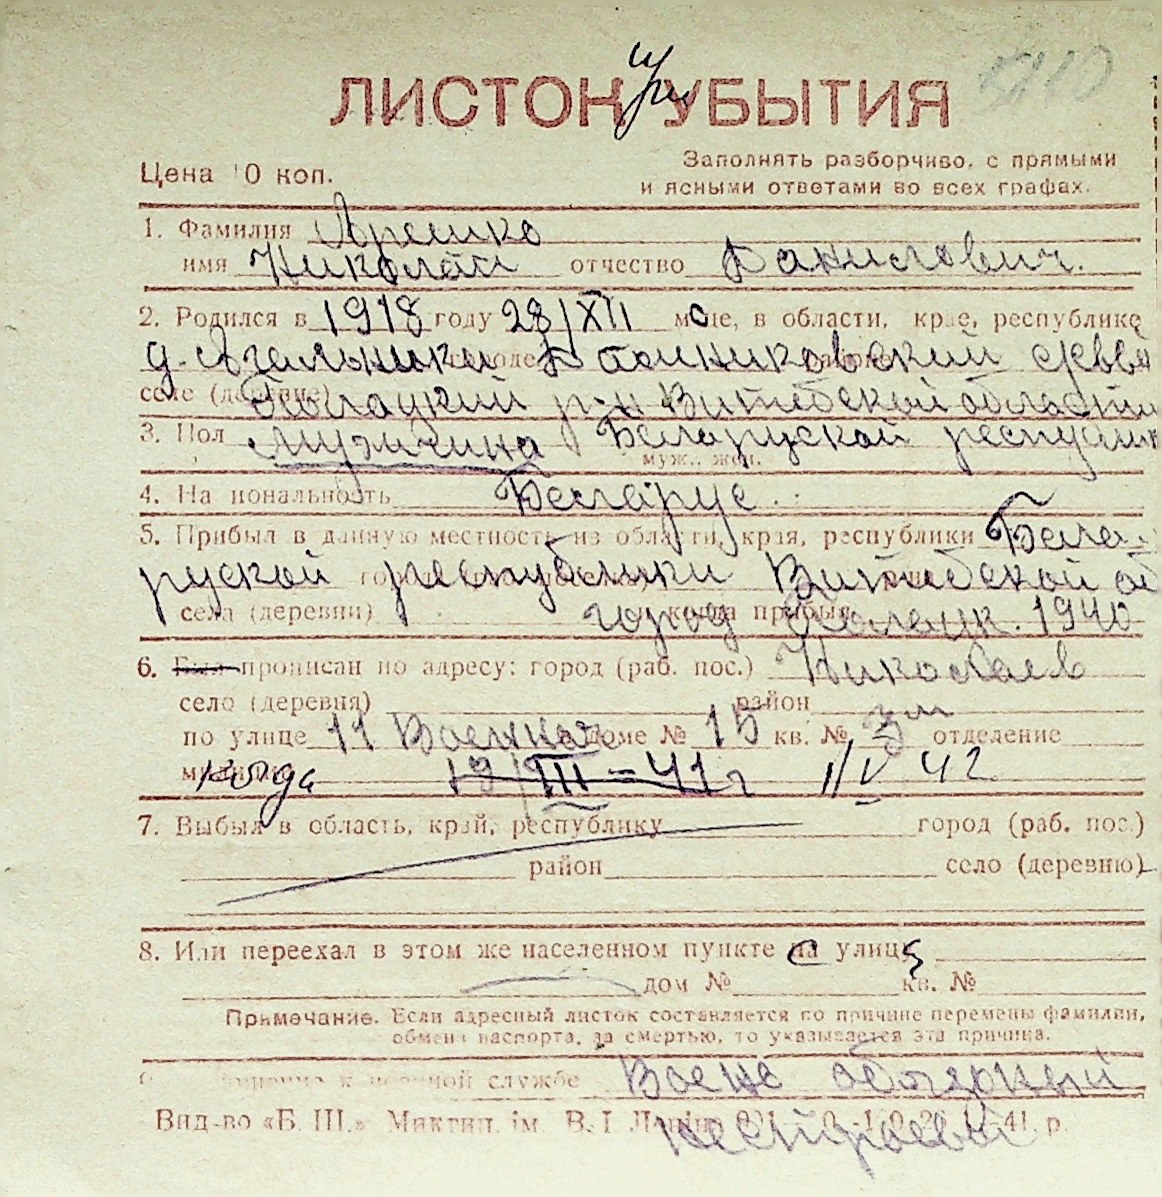 5110
ЛИСТОК при УБЫТИЯ
Цена 10 коп.
Заполнять разборчиво, с прямыми
и ясными ответами во всех графах.
1. Фамилия Арешко
имя Николай отчество Данилович.
2. Родился в 1918 году 28/XII м-це, в области, крае, республике
городе районе
селе (деревне) Полацкий р-н Витебской области
3. Пол мужчина Беларуской республик
муж., жен.
4. Национальность Беларус.
5. Прибыл в данную местность из области, края, республики Бела-
руской республики Витебской об
села (деревни) когда прибыл город Полацк. 1940
6. Был прописан по адресу: город (раб. пос.) Николаев
село (деревня) район
по улице 11 Военная в доме № 15 кв. № 3 отделение
милиции когда 19/III-41г 1/V 42
7. Выбыл в область, край, республику город (раб. пос.)
район село (деревню)
8. Или переехал в этом же населенном пункте на с улицы
дом № кв. №
Примечание. Если адресный листок составляется по причине перемены фамилии,
обмена паспорта, за смертью, то указывается эта причина.
9. Отношение к военной службе Военно обязанный
Вид-во «Б. Ш.» Миктип. ім. В. І. Леніна 41 р.
нестроевой